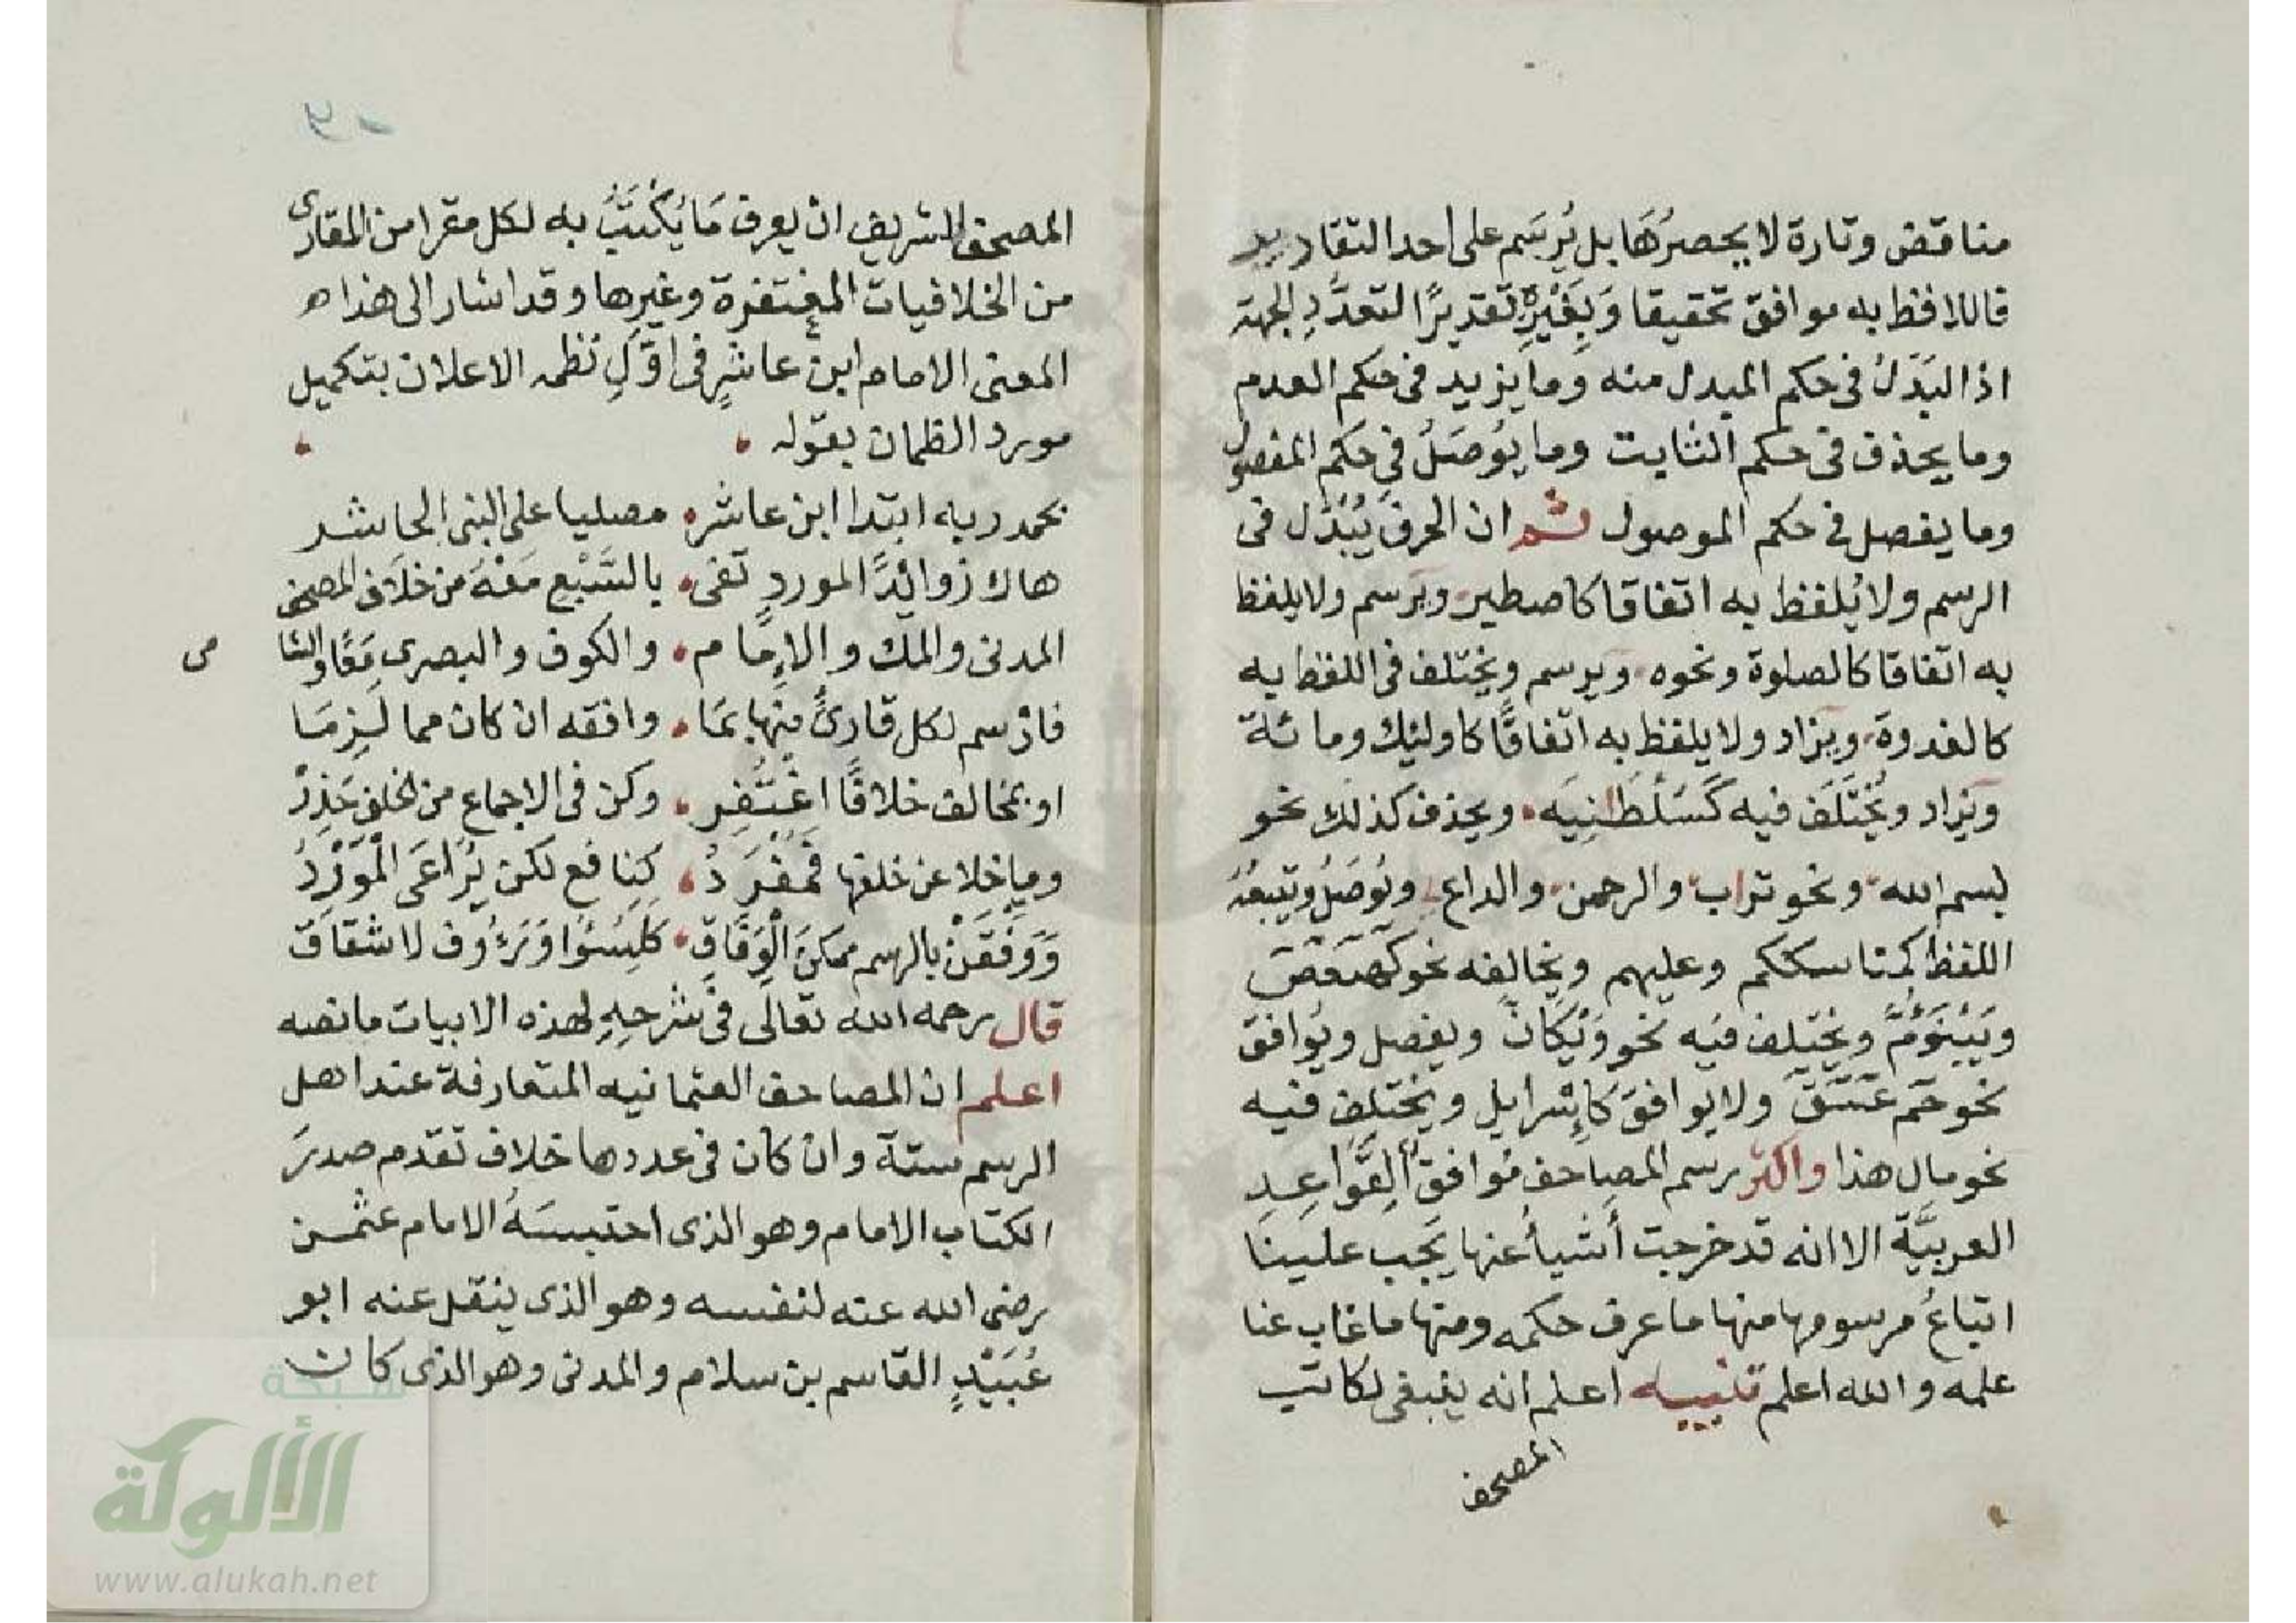 مناقض وتارة لا يحصرُهَا بل يُرسَم على احد التقادير
فاللافظ به موافق تحقيقا وَبِغَيْرِهِ تقديرًا لتعدُّدِ الجهة
اذ البَدَلُ فى حكم المبدل منه وما يزيد فى حكم العدم
وما يحذف فى حكم الثابت وما يُوصَلُ فى حكم المفصول
وما يفصل فى حكم الموصول ثم ان الحرفَ يُبْدَل فى
الرسم ولا يُلفظ به اتفاقا كاصطبر ويرسم ولا يلفظ
به اتفاقا كالصلوة ونحوه ويرسم ويختلف فى اللفظ به
كالغدوة ويزاد ولا يلفظ به اتفاقًا كاوليك ومائة
ويزاد ويُخْتَلَف فيه كَسُلْطَانِيَه ويحذف كذلك نحو
بسم الله ونحو تراب والرحمن والداع ويُوصَلُ ويتبعُهُ
اللفظ كمناسككم وعليهم ويخالفه نحو كهيعص
وَيَبْنَؤُمَّ ويختلف فيه نحو وَيْكَانَّ ويفصل ويُوافق
نحو حم عسق ولا يوافق كَاِسْرايل ويختلف فيه
نحو مال هذا واكثر رسم المصاحف مُوافق القَوَاعِدِ
العربيَّة الا انه قد خرجت أشيأُ عنها يَجب علينَا
اتباعُ مرسومها منها ما عرف حكمه ومنها ما غاب عنا
علمه والله اعلم تنبيه اعلم انه ينبغى لكاتب
المصحف
المصحف الشريف ان يعرف مَا يُكْتَبُ به لكل مقرا من المقارى
من الخلافيات المغتفرة وغيرها وقد اشار الى هذا
المعنى الامام ابن عاشرٍ فى اوَّلِ نظمه الاعلان بتكميل
مورد الظمان بقوله
بحمد ربه ابتدا ابن عاشر مصليا على النبى الحاشر
هاك زوائدًا لموردٍ تفى بالسَّبْعِ مَعْهُ من خلاف المصحف
المدنى والمك والاِمَام والكوف والبصرى مَعًا والشامى
فارسم لكل قارئٍ منها بمَا وافقه ان كان مما لَزِمَا
او بمخالف خلافًا اغْتُفِر وكن فى الاجماع من الخلف حَذِرْ
وما خلا عن خلفها فَمُفْرَدُ كنافع لكن يُرَاعَى الْمَوْرِدُ
وَوَفِّقَنْ بالرسم ممكنَ الْوِفَاقِ كَلِيَسُئُوا وَرَءُوف لا شقاق
قال رحمه الله تعالى فى شرحِهِ لهذه الابيات ما نصه
اعلم ان المصاحف العثمانيه المتعارفة عند اهل
الرسم ستة وان كان فى عددها خلاف تقدم صدرَ
الكتاب الامام وهو الذى احتبسَهُ الامام عثمن
رضى الله عنه لنفسه وهو الذى ينقل عنه ابو
عُبَيْدٍ القاسم بن سلام والمدنى وهو الذى كان
شبكة
الألوكة
www.alukah.net